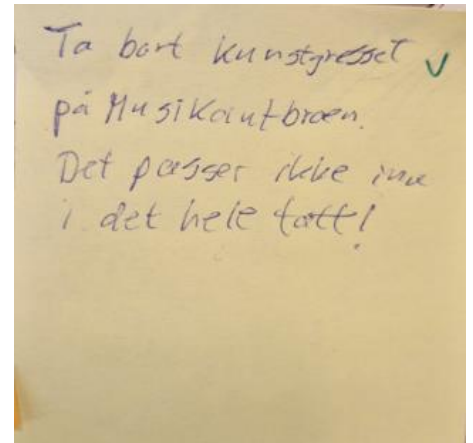 Ta bort kunstgresset ✓
på Musikantbroen.
Det passer ikke inn
i det hele tatt!